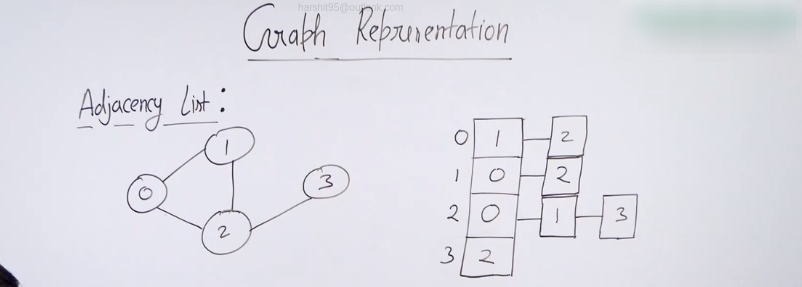 harshit95@outlook.com
Graph Representation
Adjacency List:
1
0
3
2
0 1 2
1 0 2
2 0 1 3
3 2